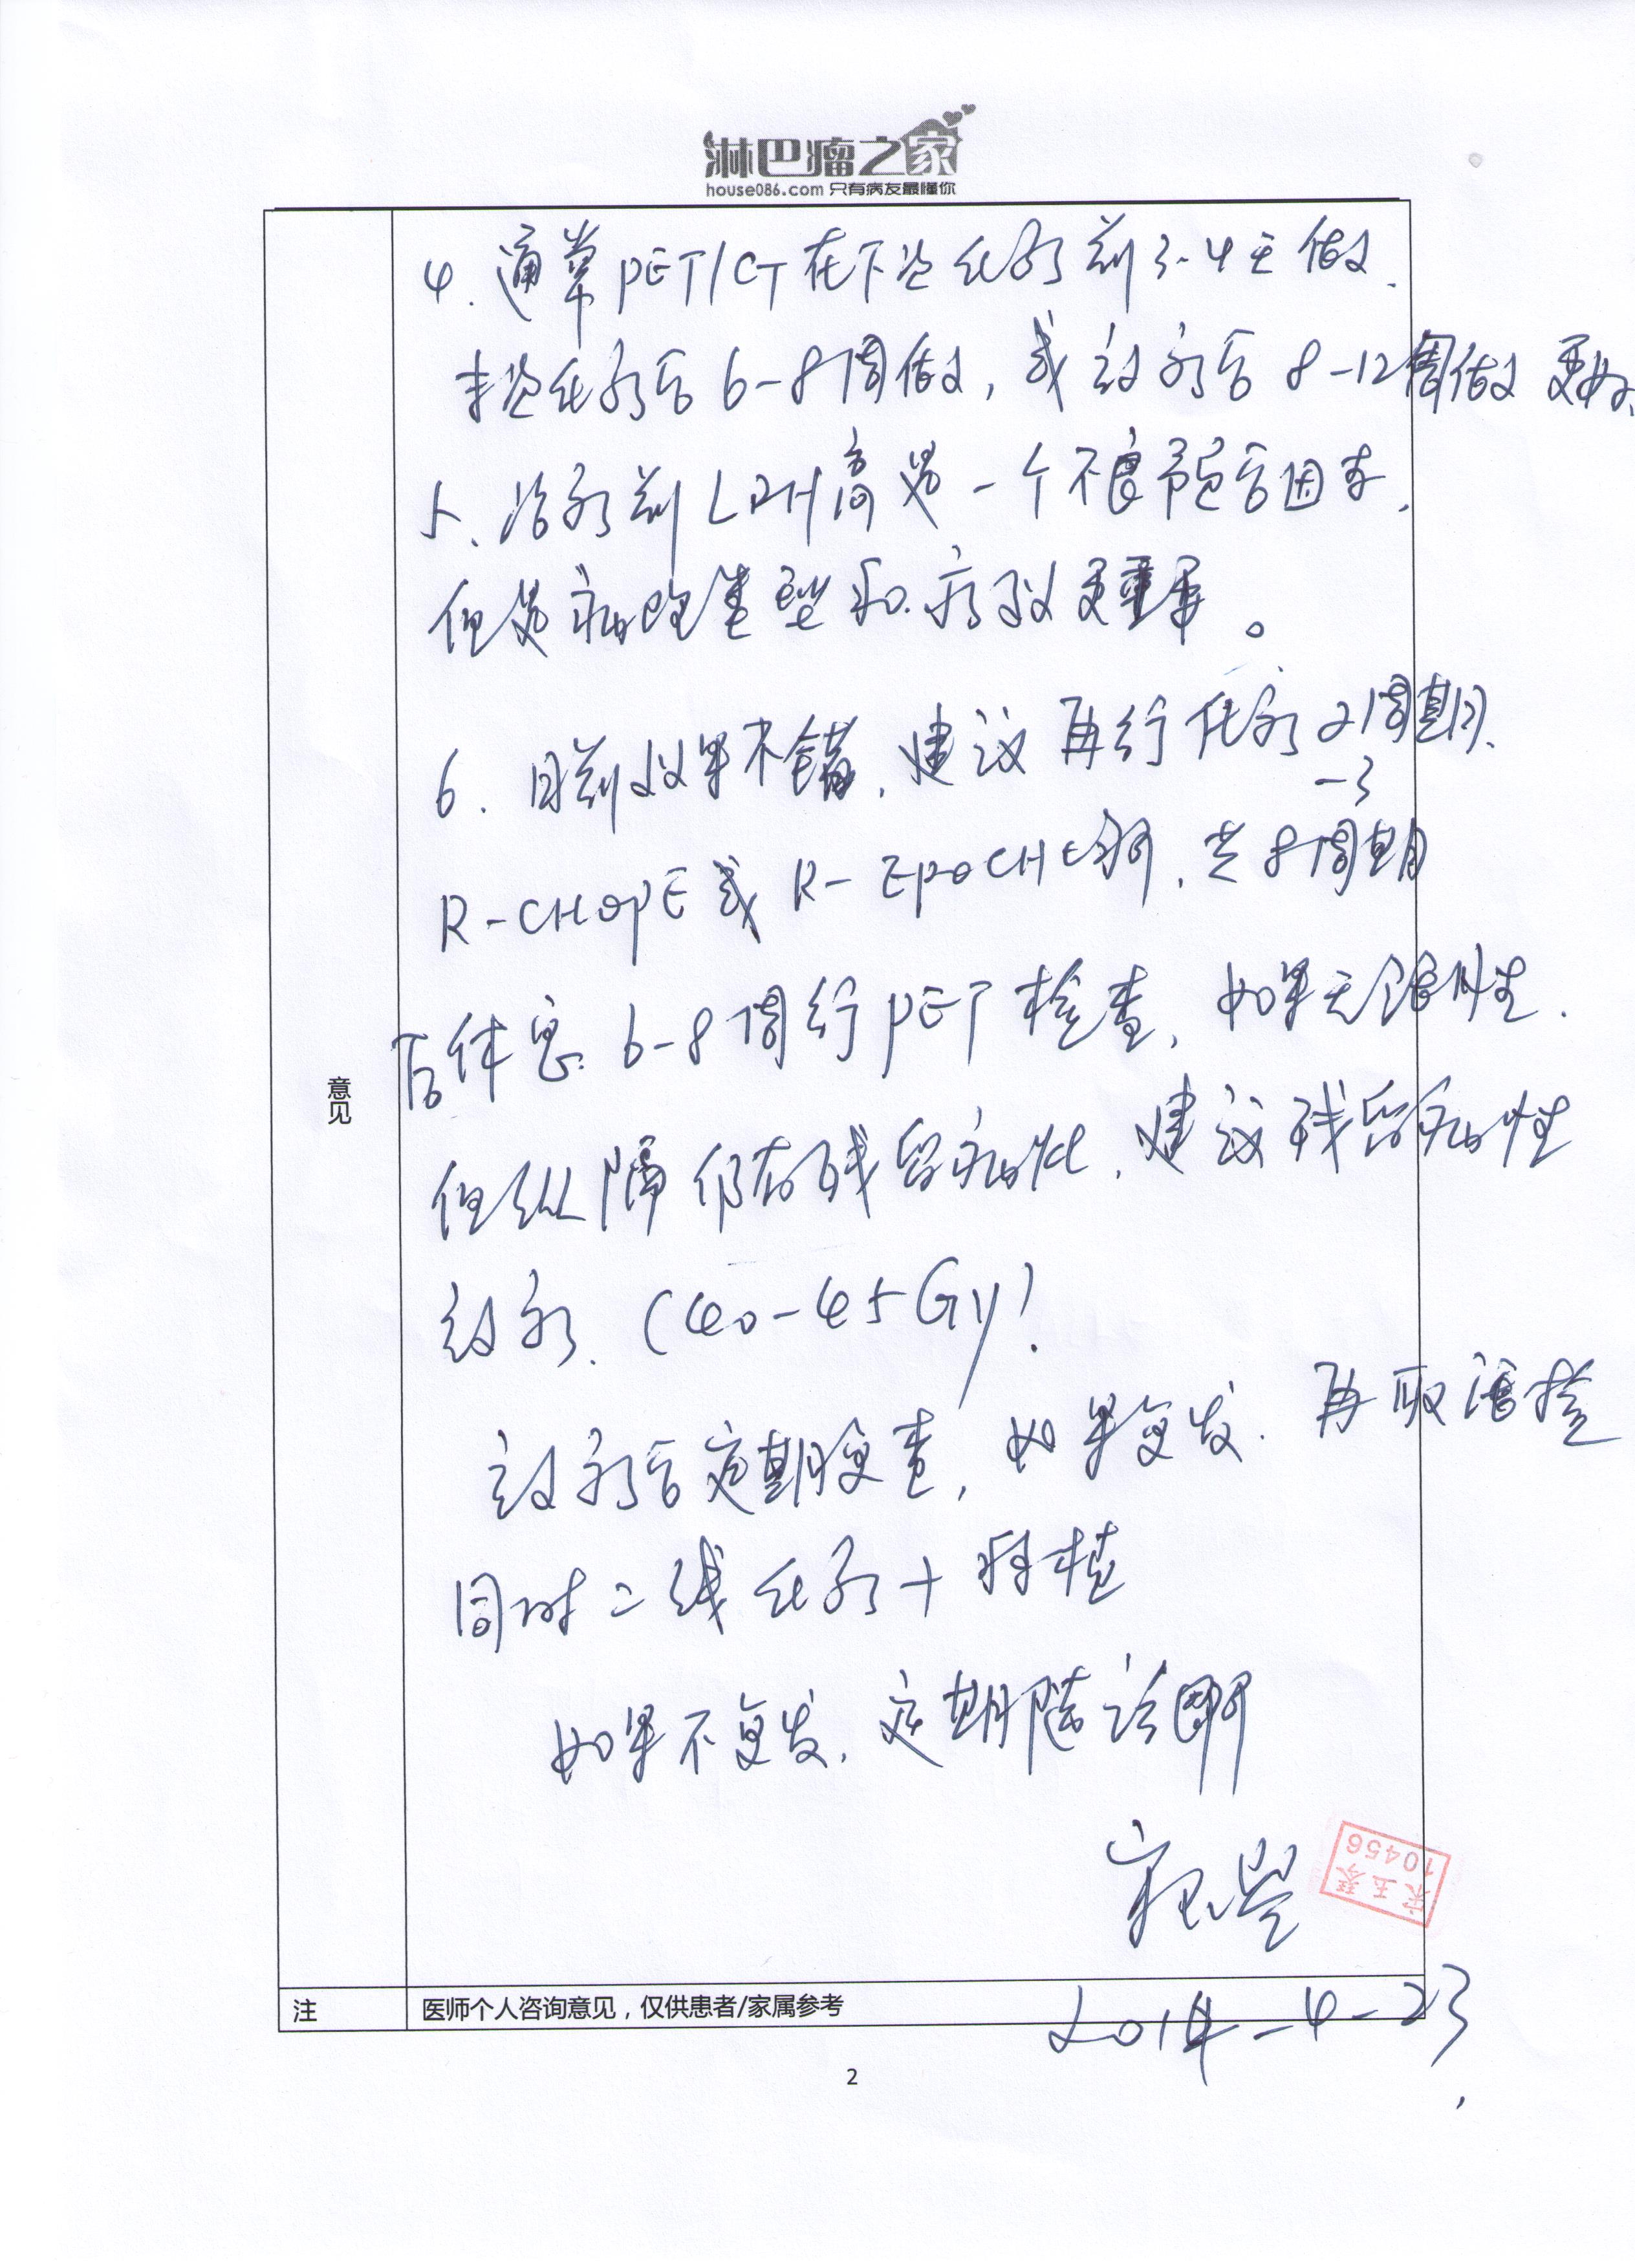 淋巴瘤之家
house086.com 只有病友最懂你
4. 通常PET/CT在下次化疗前3-4天做.
末次化疗后6-8周做, 或放疗后8-12周做更好.
5. 治疗前LDH高是一个不良预后因素.
但是病理类型和疗效更重要。
6. 目前效果不错, 建议再行化疗2周期.
-3
R-CHOPE或R-EPOCH, 共8周期
后休息6-8周行PET检查, 如果无阳性.
但纵隔仍有残留病灶, 建议残留病灶
放疗. (40-45Gy).
放疗后定期复查, 如果复发. 再取活检
同时二线化疗+移植
如果不复发, 定期随诊即可
意见
宋玉琴
10456
注
医师个人咨询意见，仅供患者/家属参考
2014-4-23
2